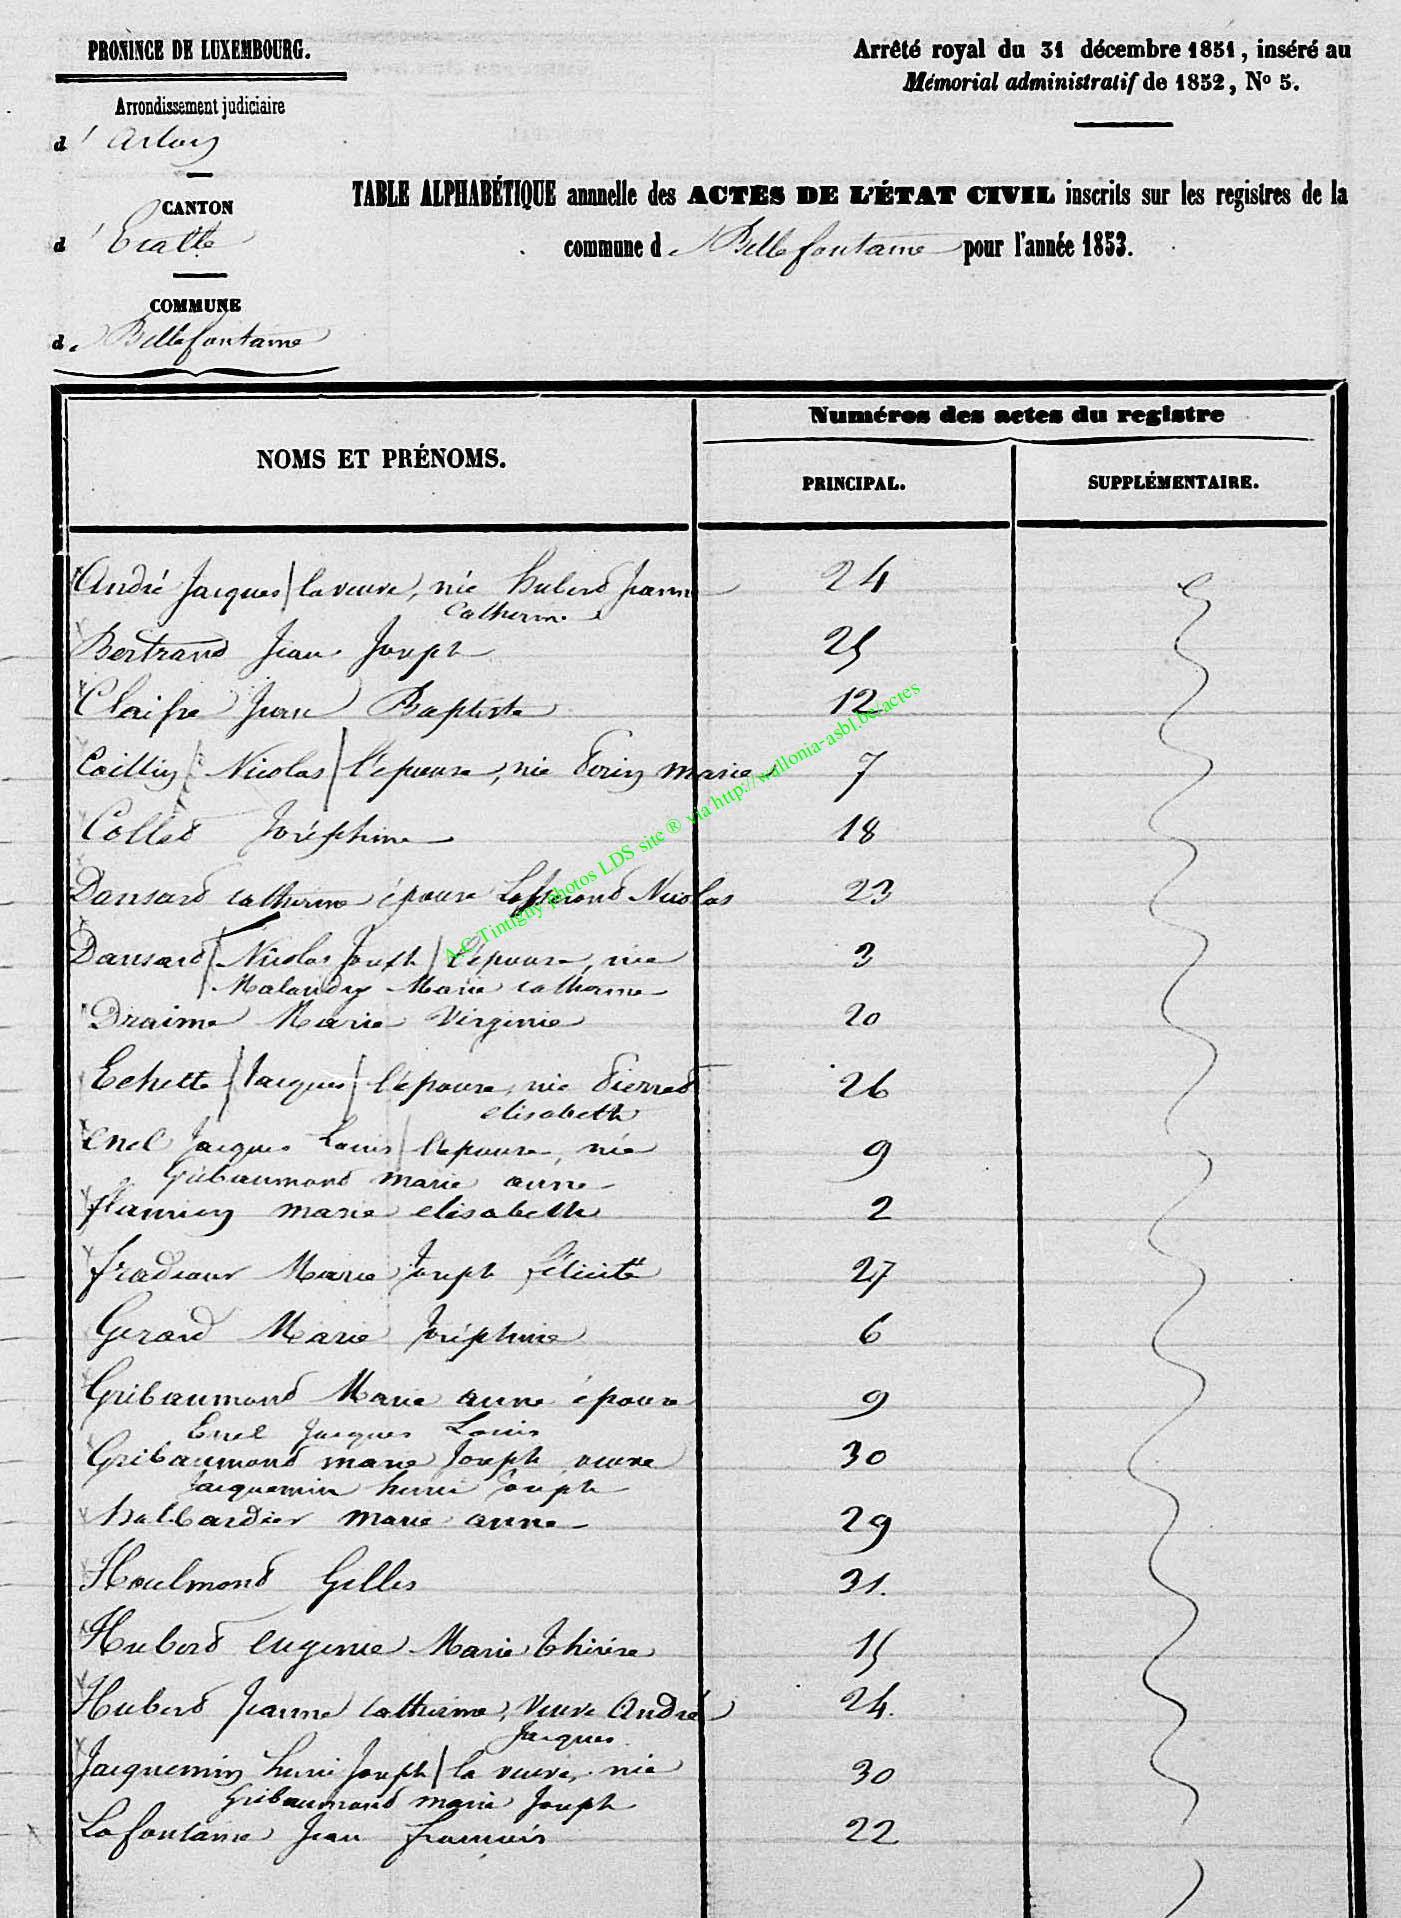 PROVINCE DE LUXEMBOURG.
Arrondissement judiciaire
d' Arlon
CANTON
d' Etalle
COMMUNE
de Bellefontaine
Arrêté royal du 31 décembre 1851, inséré au
Mémorial administratif de 1852, No 5.
TABLE ALPHABÉTIQUE annuelle des ACTES DE L'ÉTAT CIVIL inscrits sur les registres de la
commune de Bellefontaine pour l'année 1853.
NOMS ET PRÉNOMS.
Numéros des actes du registre
PRINCIPAL.
SUPPLÉMENTAIRE.
André Jacques / la veuve, née Hubert Jeanne 24
Catherine
Bertrand Jean Joseph 25
Claisse Jean Baptiste 12
Nicolas / l'épouse, née marie 7
Collet Joséphine 18
Dansard catherine épouse Nicolas 23
Dansard / Nicolas Joseph / l'épouse, née 3
Malaudry Marie catherine
Draime Marie Virginie 20
Echette / Jacques / l'épouse, née Pierret 26
elisabeth
Enel Jacques Louis / l'épouse, née 9
Gribaumont marie anne
marie elisabeth 2
Marie Joseph félicité 27
Gerard Marie Joséphine 6
Gribaumont Marie anne épouse 9
Enel Jacques Louis
Gribaumont marie Joseph veuve 30
Jacquemin henri Joseph
halbardier marie anne 29
Houlmont Gilles 31.
Hubert eugenie Marie thérèse 15
Hubert Jeanne catherine, Veuve André 24.
Jacques
Jacquemin henri Joseph / la veuve, née 30
Gribaumont marie Joseph
Lafontaine Jean françois 22
A.C Tintigny photos LDS site ® via http://wallonia-asbl.be/actes